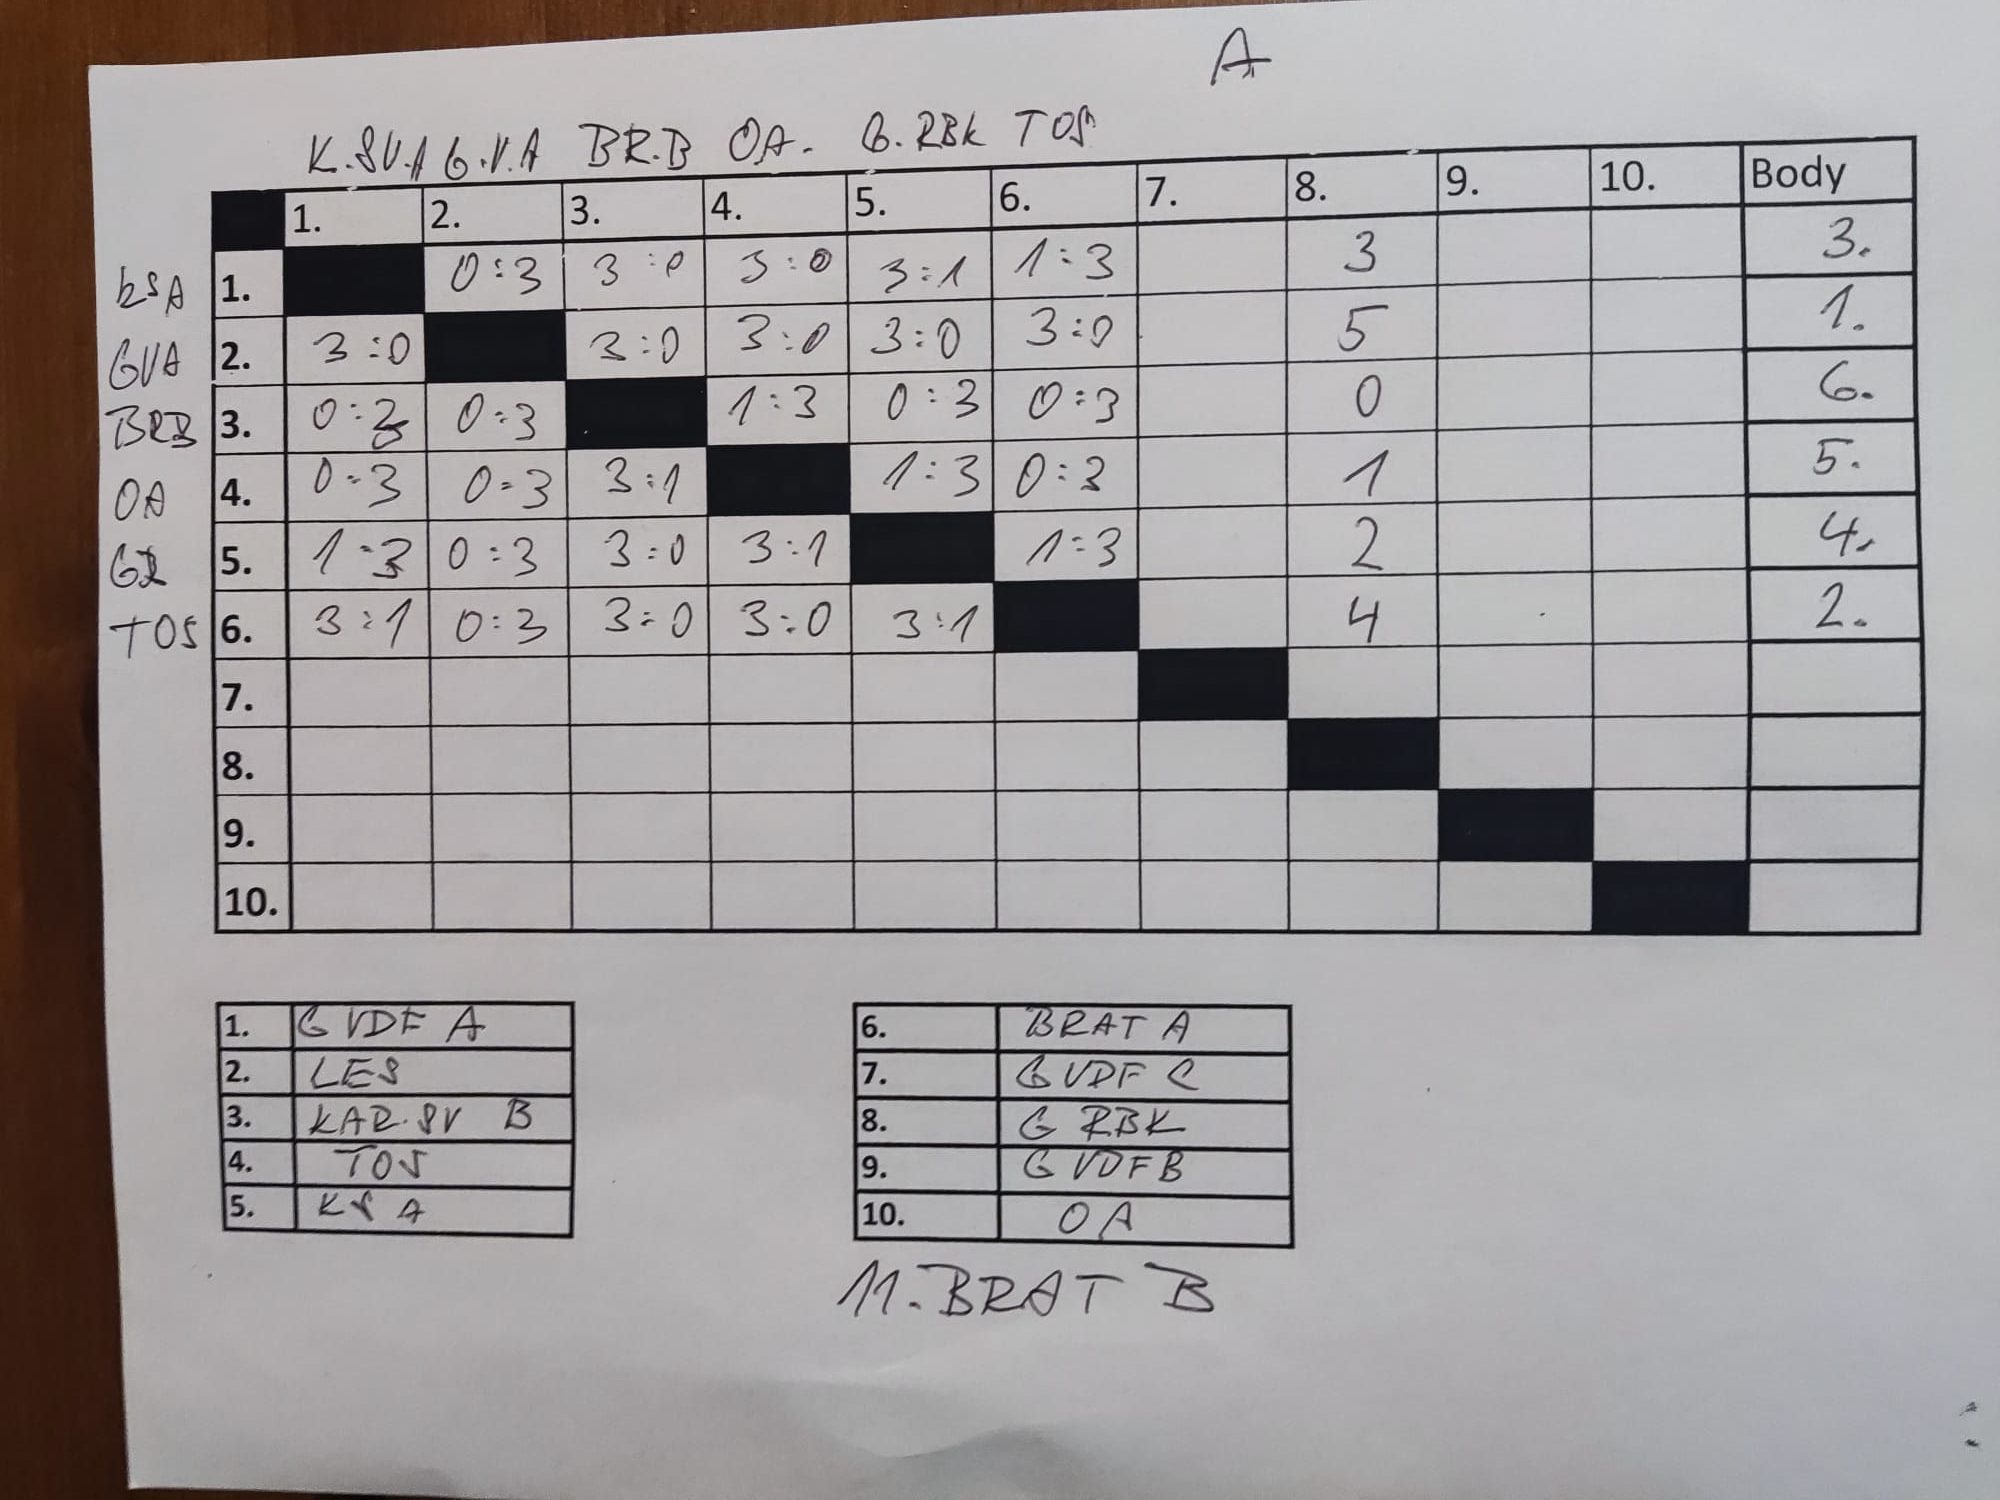 A
K.SV.A G.V.A BR.B OA. G.RBK TOS
1. 2. 3. 4. 5. 6. 7. 8. 9. 10. Body
KSA 1. 0:3 3:0 3:0 3:1 1:3 3 3.
GVA 2. 3:0 3:0 3:0 3:0 3:0 5 1.
BRB 3. 0:3 0:3 1:3 0:3 0:3 0 6.
OA 4. 0:3 0:3 3:1 1:3 0:3 1 5.
5. 1:3 0:3 3:0 3:1 1:3 2 4.
TOS 6. 3:1 0:3 3:0 3:0 3:1 4 2.
7.
8.
9.
10.
1. GVDF A
2. LES
3. KAR.SV B
4. TOS
5. KS A
6. BRAT A
7. GVDF C
8. G RBK
9. GVDF B
10. OA
11. BRAT B